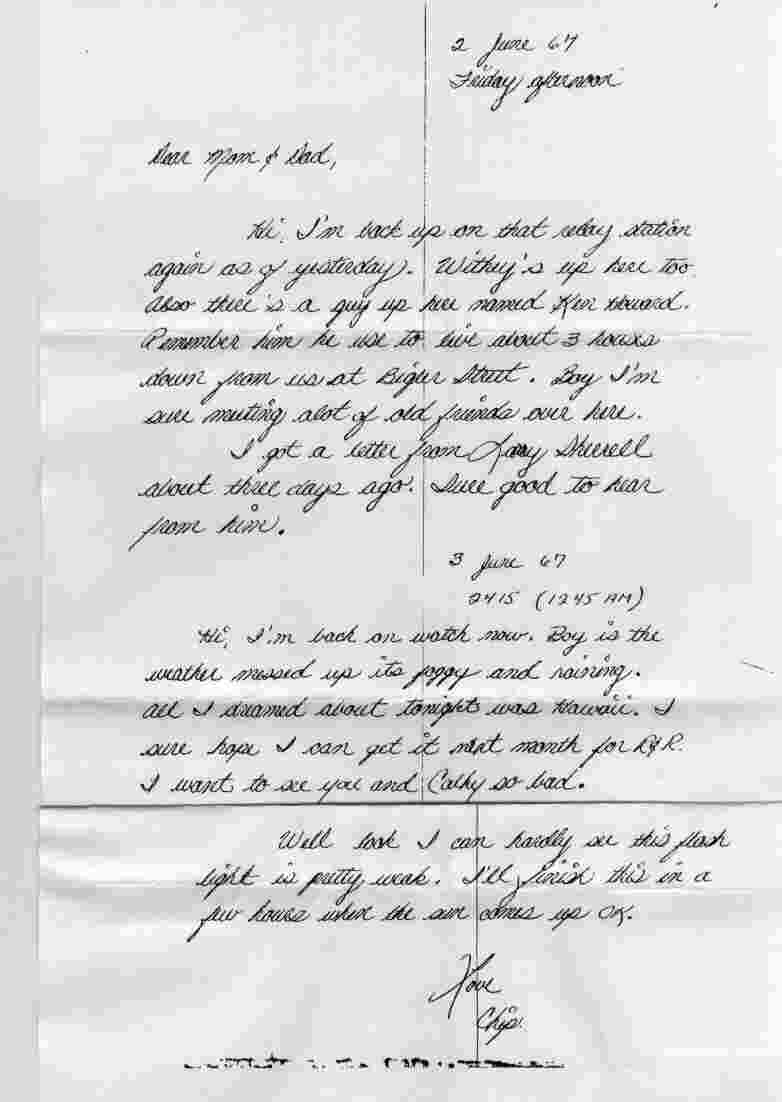 2 June 67
Friday afternoon
Dear Mom & Dad,
Hi, I'm back up on that relay station
again as of yesterday. Withey's up here too.
Also there's a guy up here named Ken Howard.
Remember him he use to live about 3 houses
down from us at Bigler Street. Boy I'm
sure meeting alot of old friends over here.
I got a letter from Sherrell
about three days ago. Sure good to hear
from him.
3 June 67
2415 (1245 AM)
Hi, I'm back on watch now. Boy is the
weather messed up its foggy and raining.
All I dreamed about tonight was Hawaii. I
sure hope I can get it next month for R&R.
I want to see you and Cathy so bad.
Well look I can hardly see this flash
light is pretty weak. I'll finish this in a
few hours when the sun comes up OK.
Love
Chip